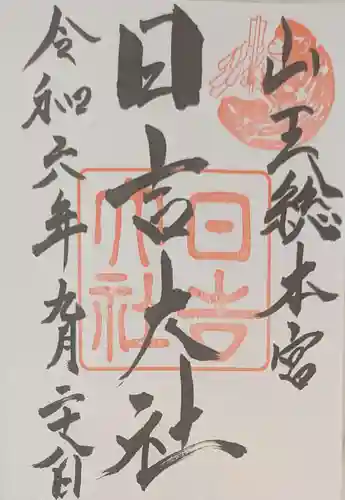 山王総本宮
日吉大社
令和六年九月二十八日
日吉大社